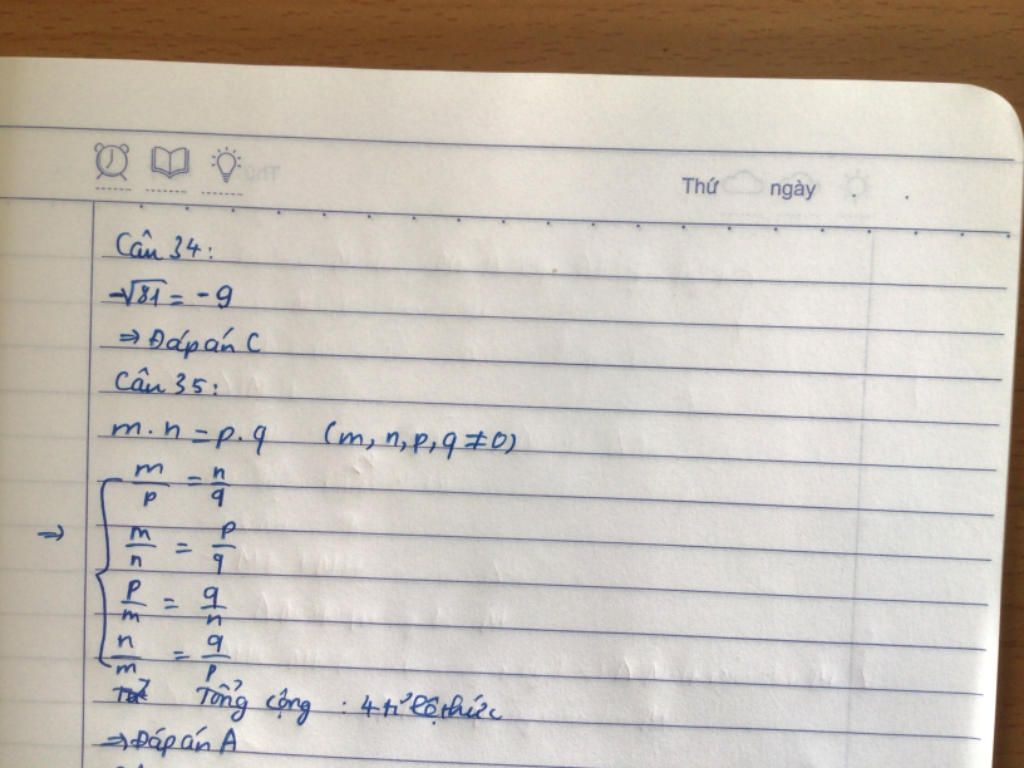 Thứ ngày
Câu 34:
-√81 = -9
⇒ Đáp án C
Câu 35:
m.n = p.q (m, n, p, q ≠ 0)
m/p = n/q
⇒ m/n = p/q
p/m = q/n
n/m = q/p
Tổng cộng : 4 tỉ lệ thức
⇒ Đáp án A